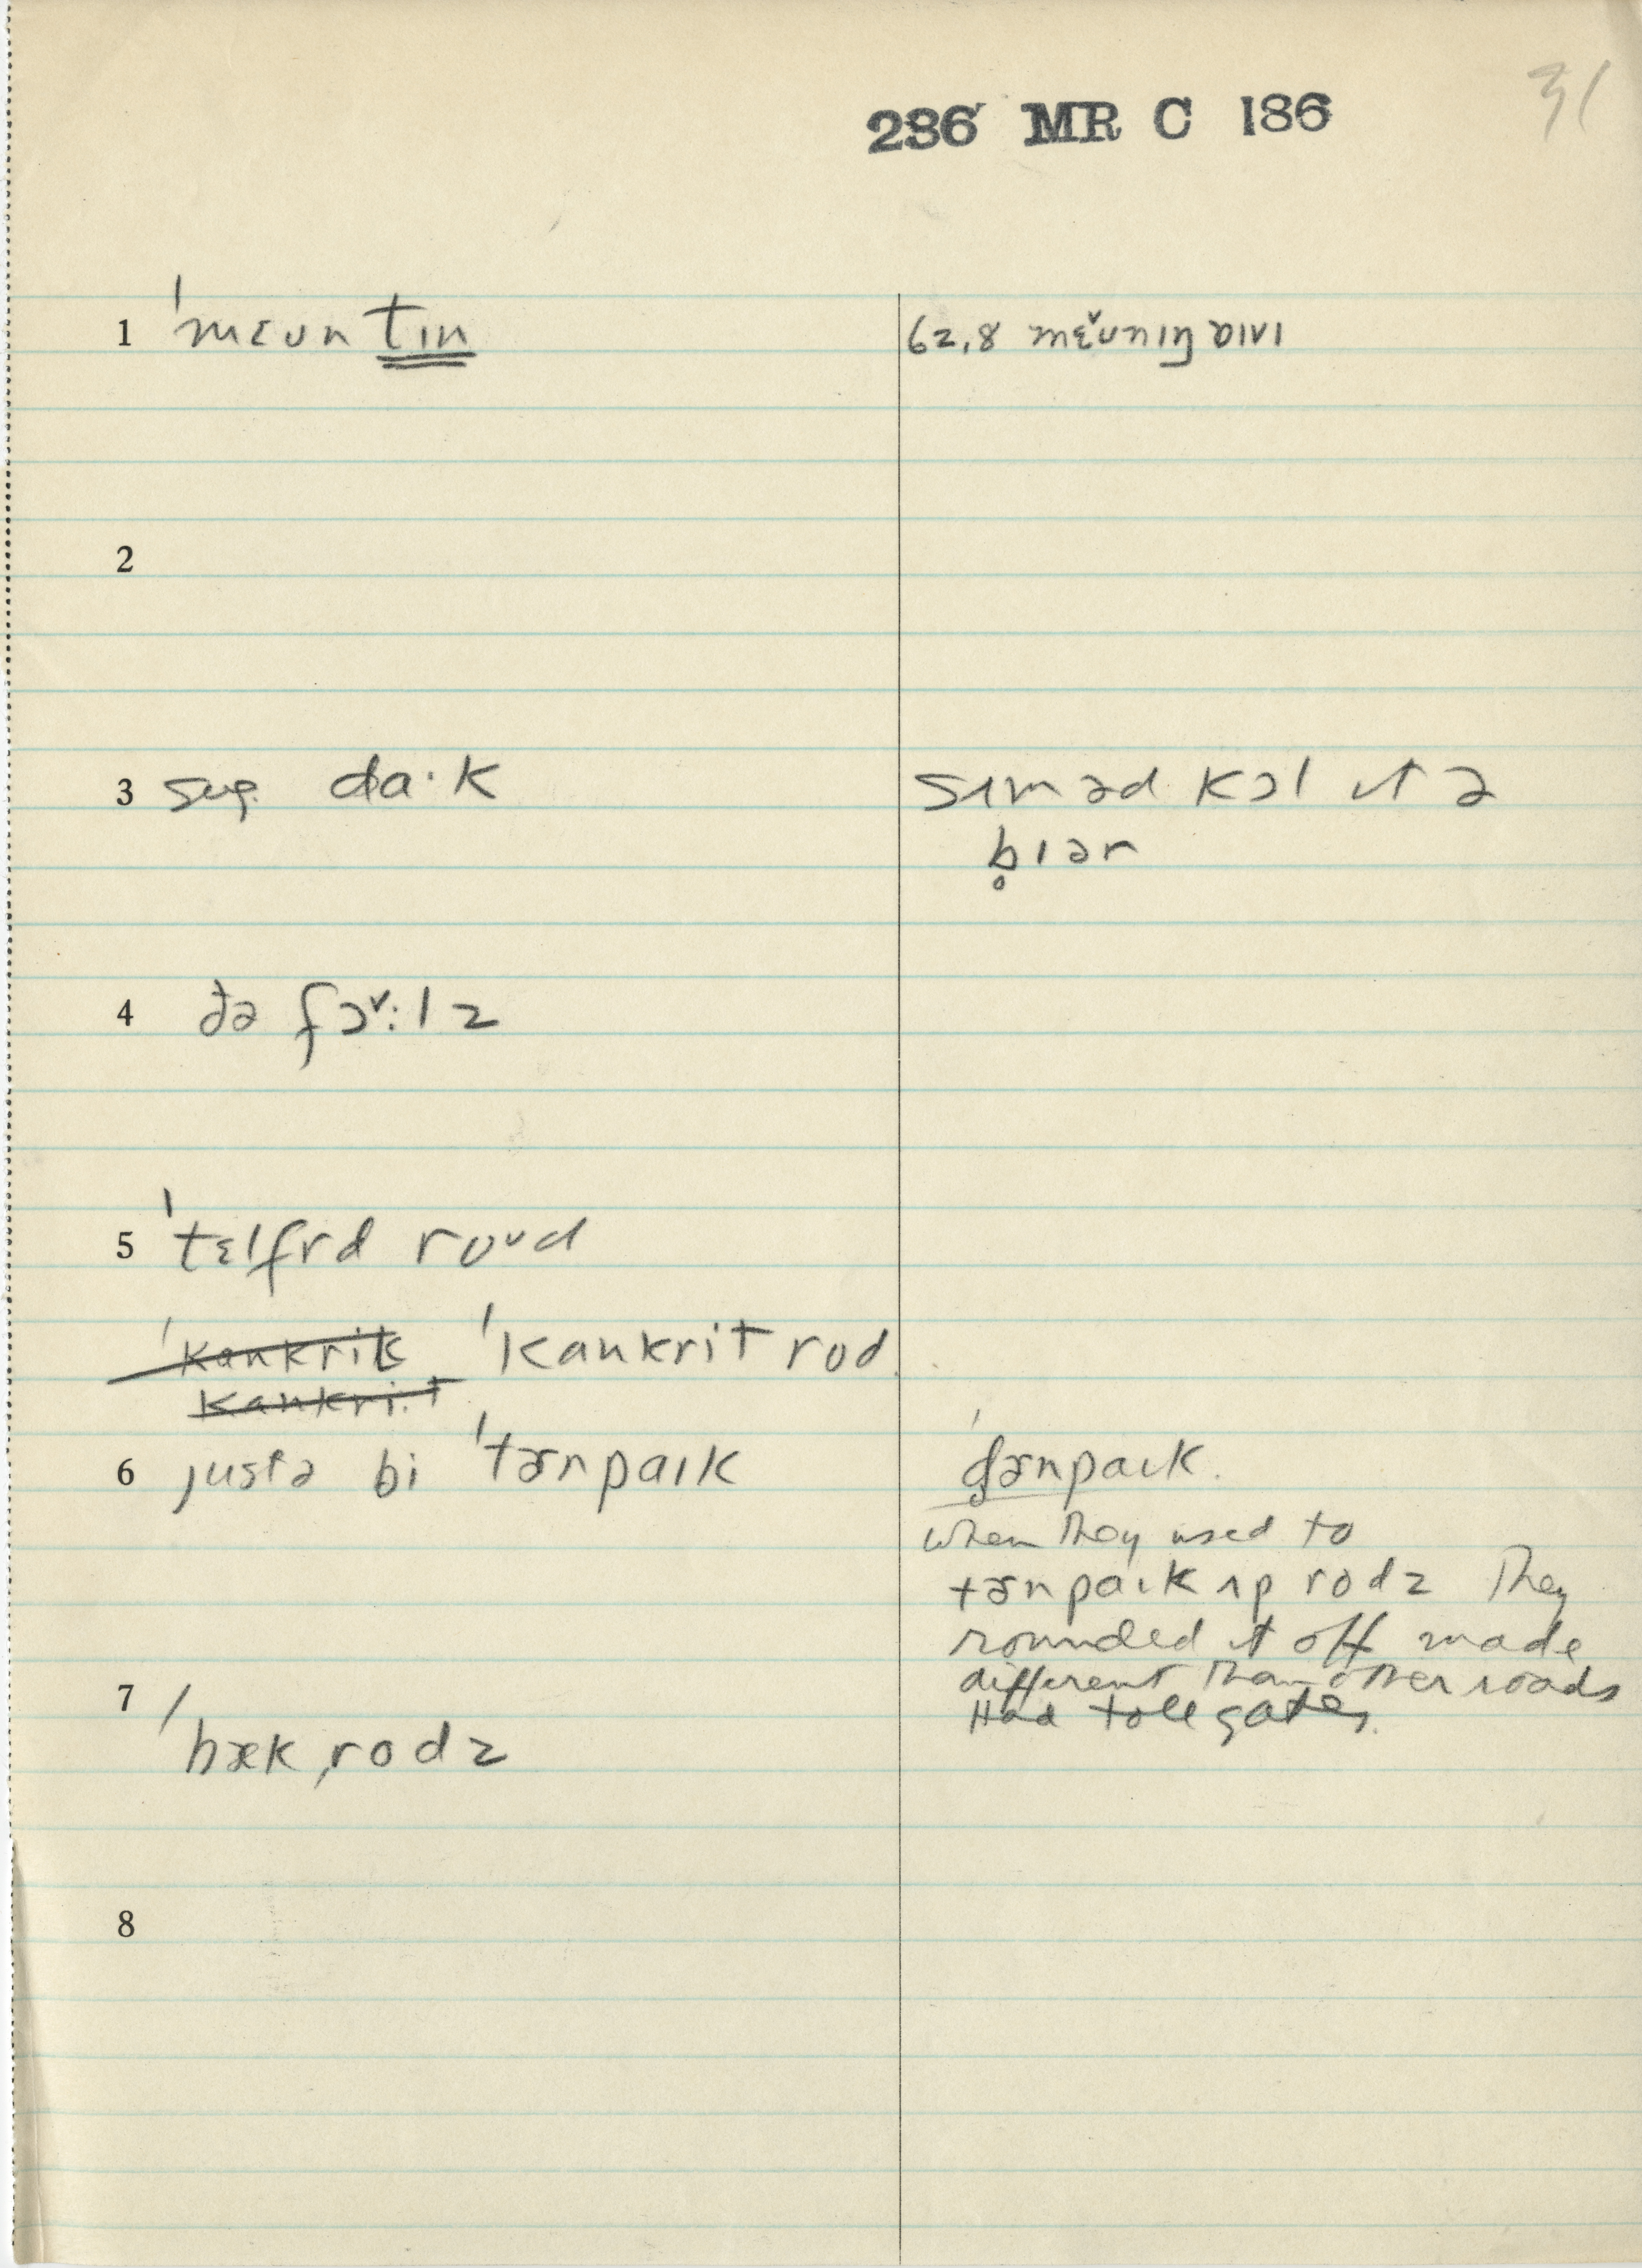 31
236 MR C 186
1 ˈmɛʊn tɪn
62.8 mɛ̌ʊnɪŋ
2
3 da·k
sɪməd kɔl ɪt ə
b̥ɪər
4 ðə fɔˇ:lz
5 ˈtɛlfrd roʊd
ˈkankrik ˈkankrit rod
kankrit
6 justə bi ˈtɚnpaɪk
ˈd̥ɚnpaɪk.
when they used to
tɚnpaɪk ʌp rodz They
rounded it off made
different than other roads
Had toll gates.
7 ˈbækˌrodz
8